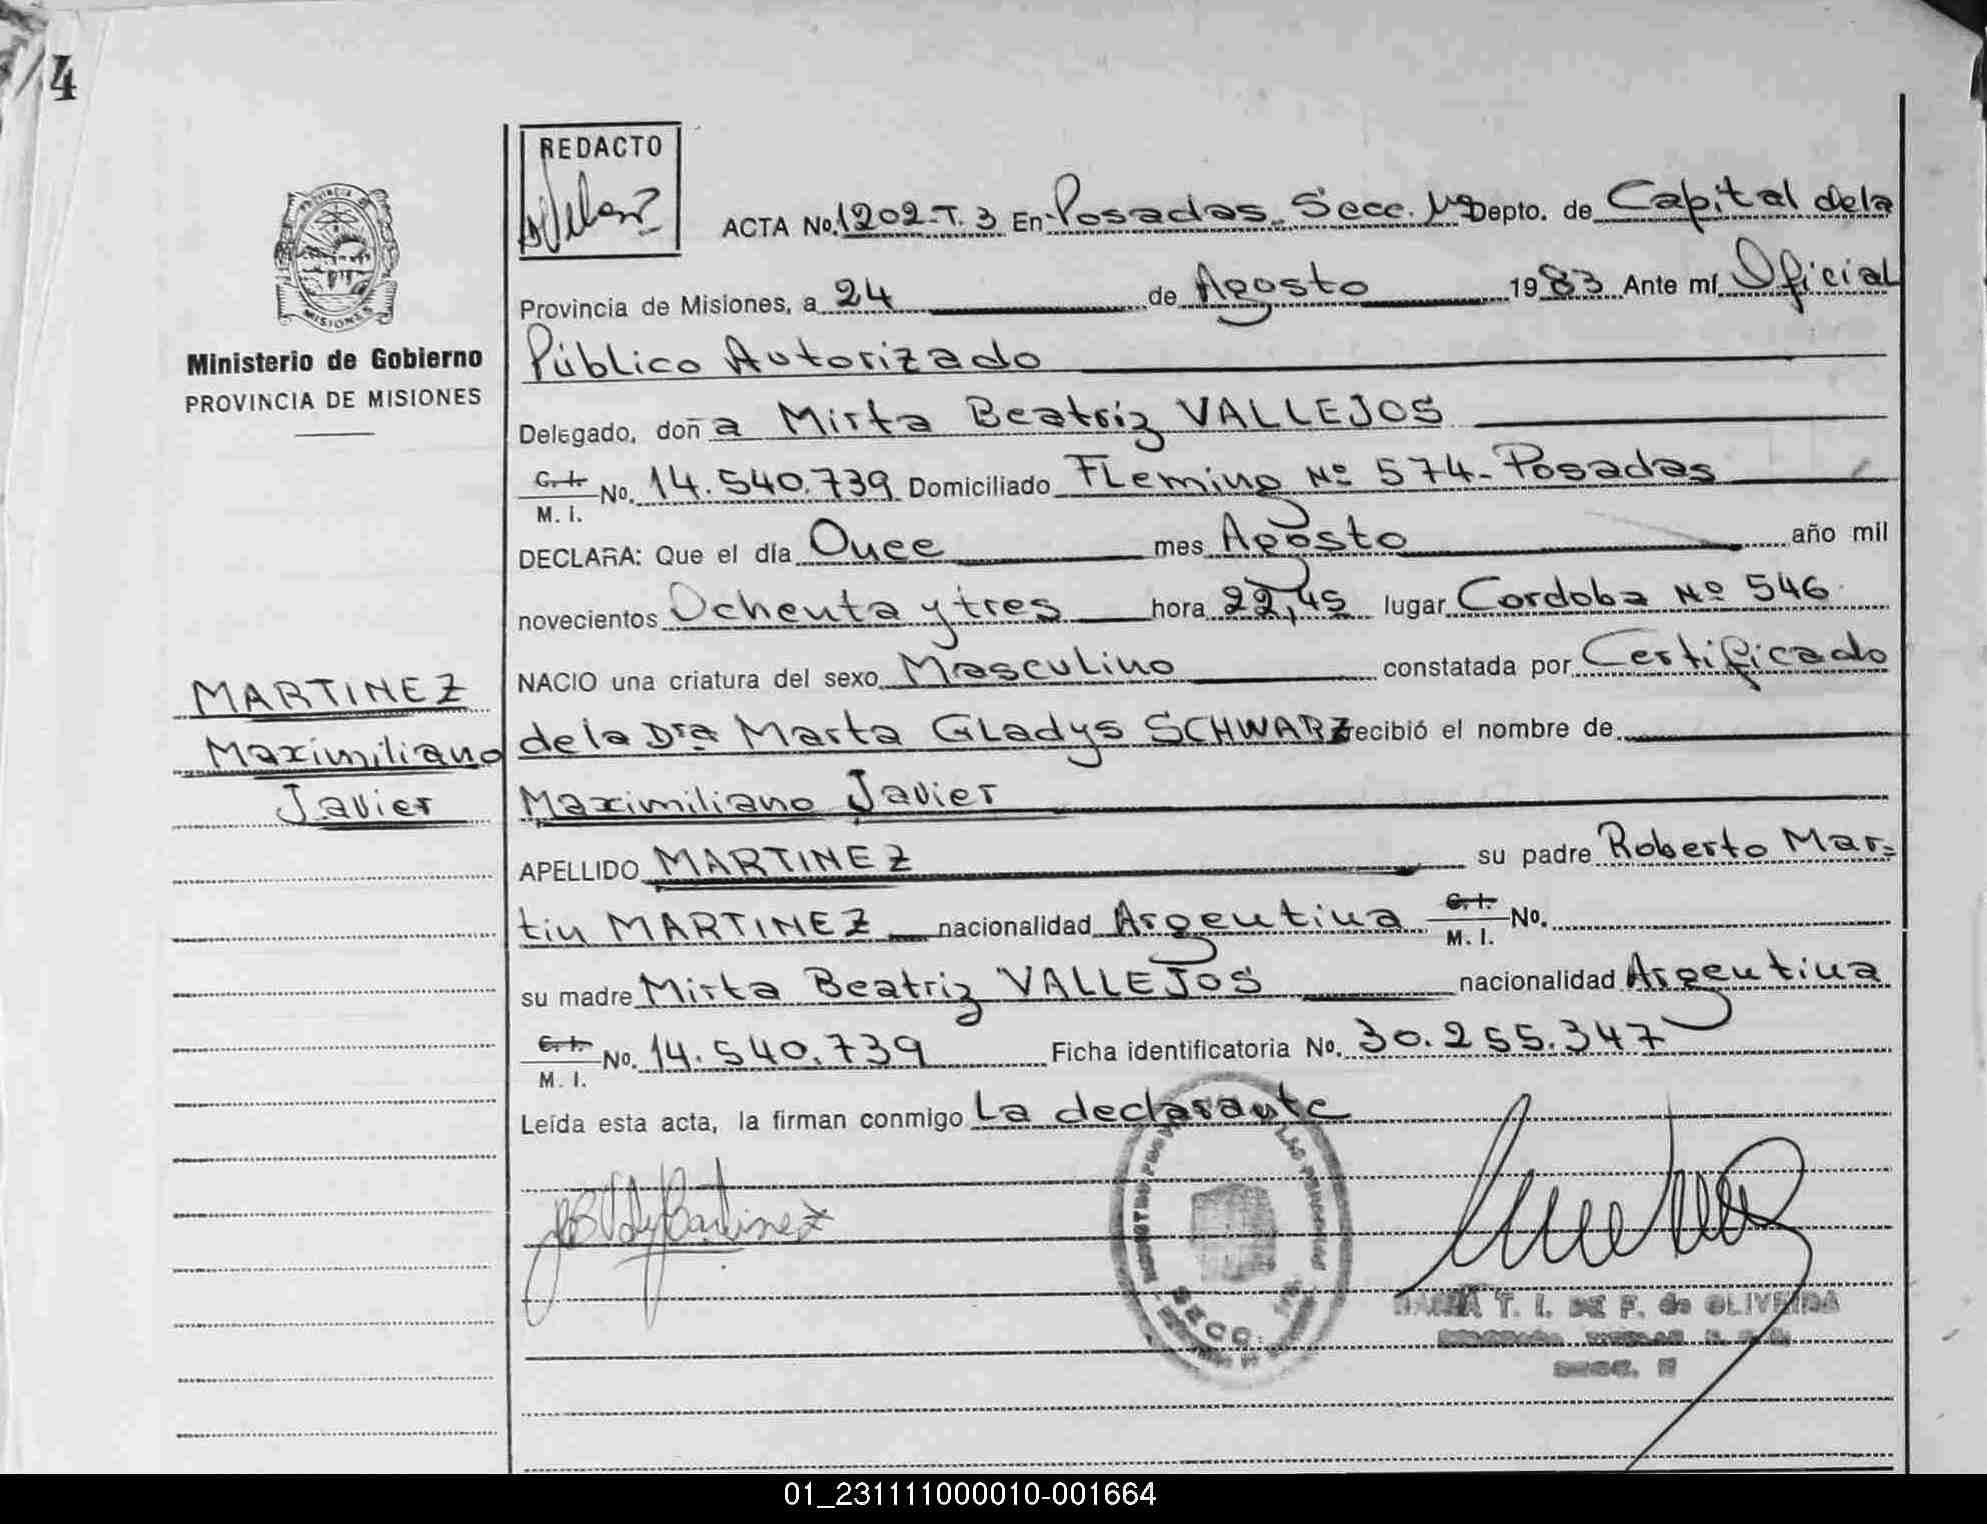 4
REDACTO
ACTA No. 1202-T. 3 En Posadas, Secc. Depto. de Capital de la
PROVINCIA DE
MISIONES
Provincia de Misiones, a 24 de Agosto 1983 Ante mí Oficial
Ministerio de Gobierno
PROVINCIA DE MISIONES
Público Autorizado
Delegado, doña Mirta Beatriz VALLEJOS
C. I.
M. I.
No. 14.540.739 Domiciliado Fleming Nº 574 - Posadas
DECLARA: Que el día Once mes Agosto año mil
novecientos Ochenta y tres hora 22,45 lugar Cordoba Nº 546
NACIO una criatura del sexo Masculino constatada por Certificado
MARTINEZ
Maximiliano
Javier
de la Dra Marta Gladys SCHWARZ recibió el nombre de
Maximiliano Javier
APELLIDO MARTINEZ su padre Roberto Mar=
tin MARTINEZ nacionalidad Argentina C. I. M. I. No.
su madre Mirta Beatriz VALLEJOS nacionalidad Argentina
C. I.
M. I.
No. 14.540.739 Ficha identificatoria No. 30.255.347
Leída esta acta, la firman conmigo La declarante
SECC.
T. I. DE F. de OLIVEIRA
01_231111000010-001664